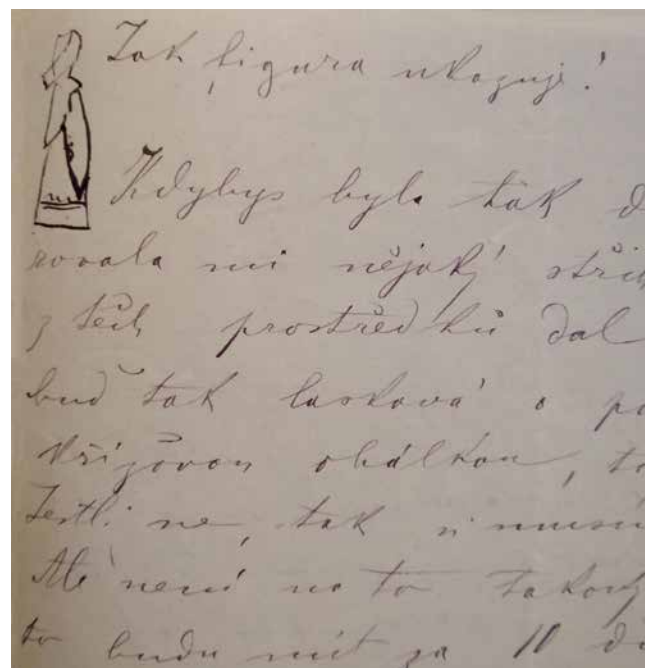 Jak figura ukazuje!
Kdybys byla tak d
rovala mi nějaký střih
z těch prostředků dal
buď tak laskavá a po
křížovou obálkou, to
Jestli ne, tak si musí
Ale není na to takový
to budu mít za 10 d